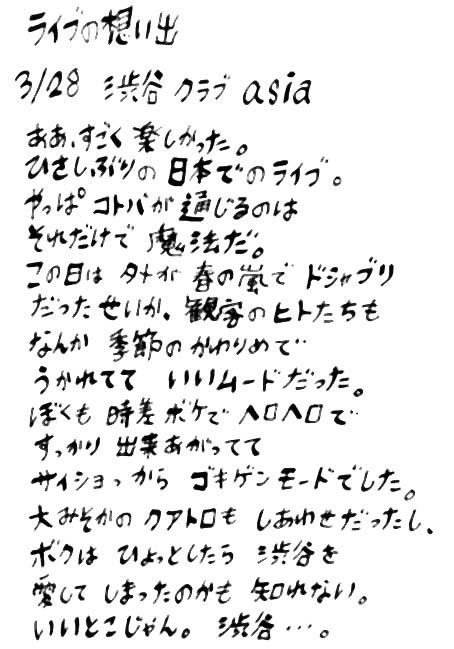 ライブの想い出
3/28 渋谷 クラブ asia
ああ、すごく楽しかった。
ひさしぶりの日本でのライブ。
やっぱ コトバが通じるのは
それだけで 魔法だ。
この日は タメが 春の嵐で ドシャブリ
だったせいか、観客のヒトたちも
なんか 季節の かわりめで
うかれてて いいムードだった。
ぼくも 時差ボケで ヘロヘロで
すっかり 出来あがってて
サイショっから ゴキゲンモードでした。
大みそかの クアトロも しあわせだったし、
ボクは ひょっとしたら 渋谷を
愛して しまったのかも 知れない。
いいとこじゃん。 渋谷…。